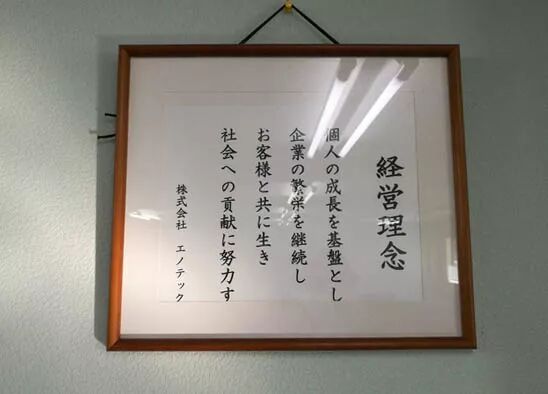 経営理念
個人の成長を基盤とし
企業の繁栄を継続し
お客様と共に生き
社会への貢献に努力す
株式会社 エノテック